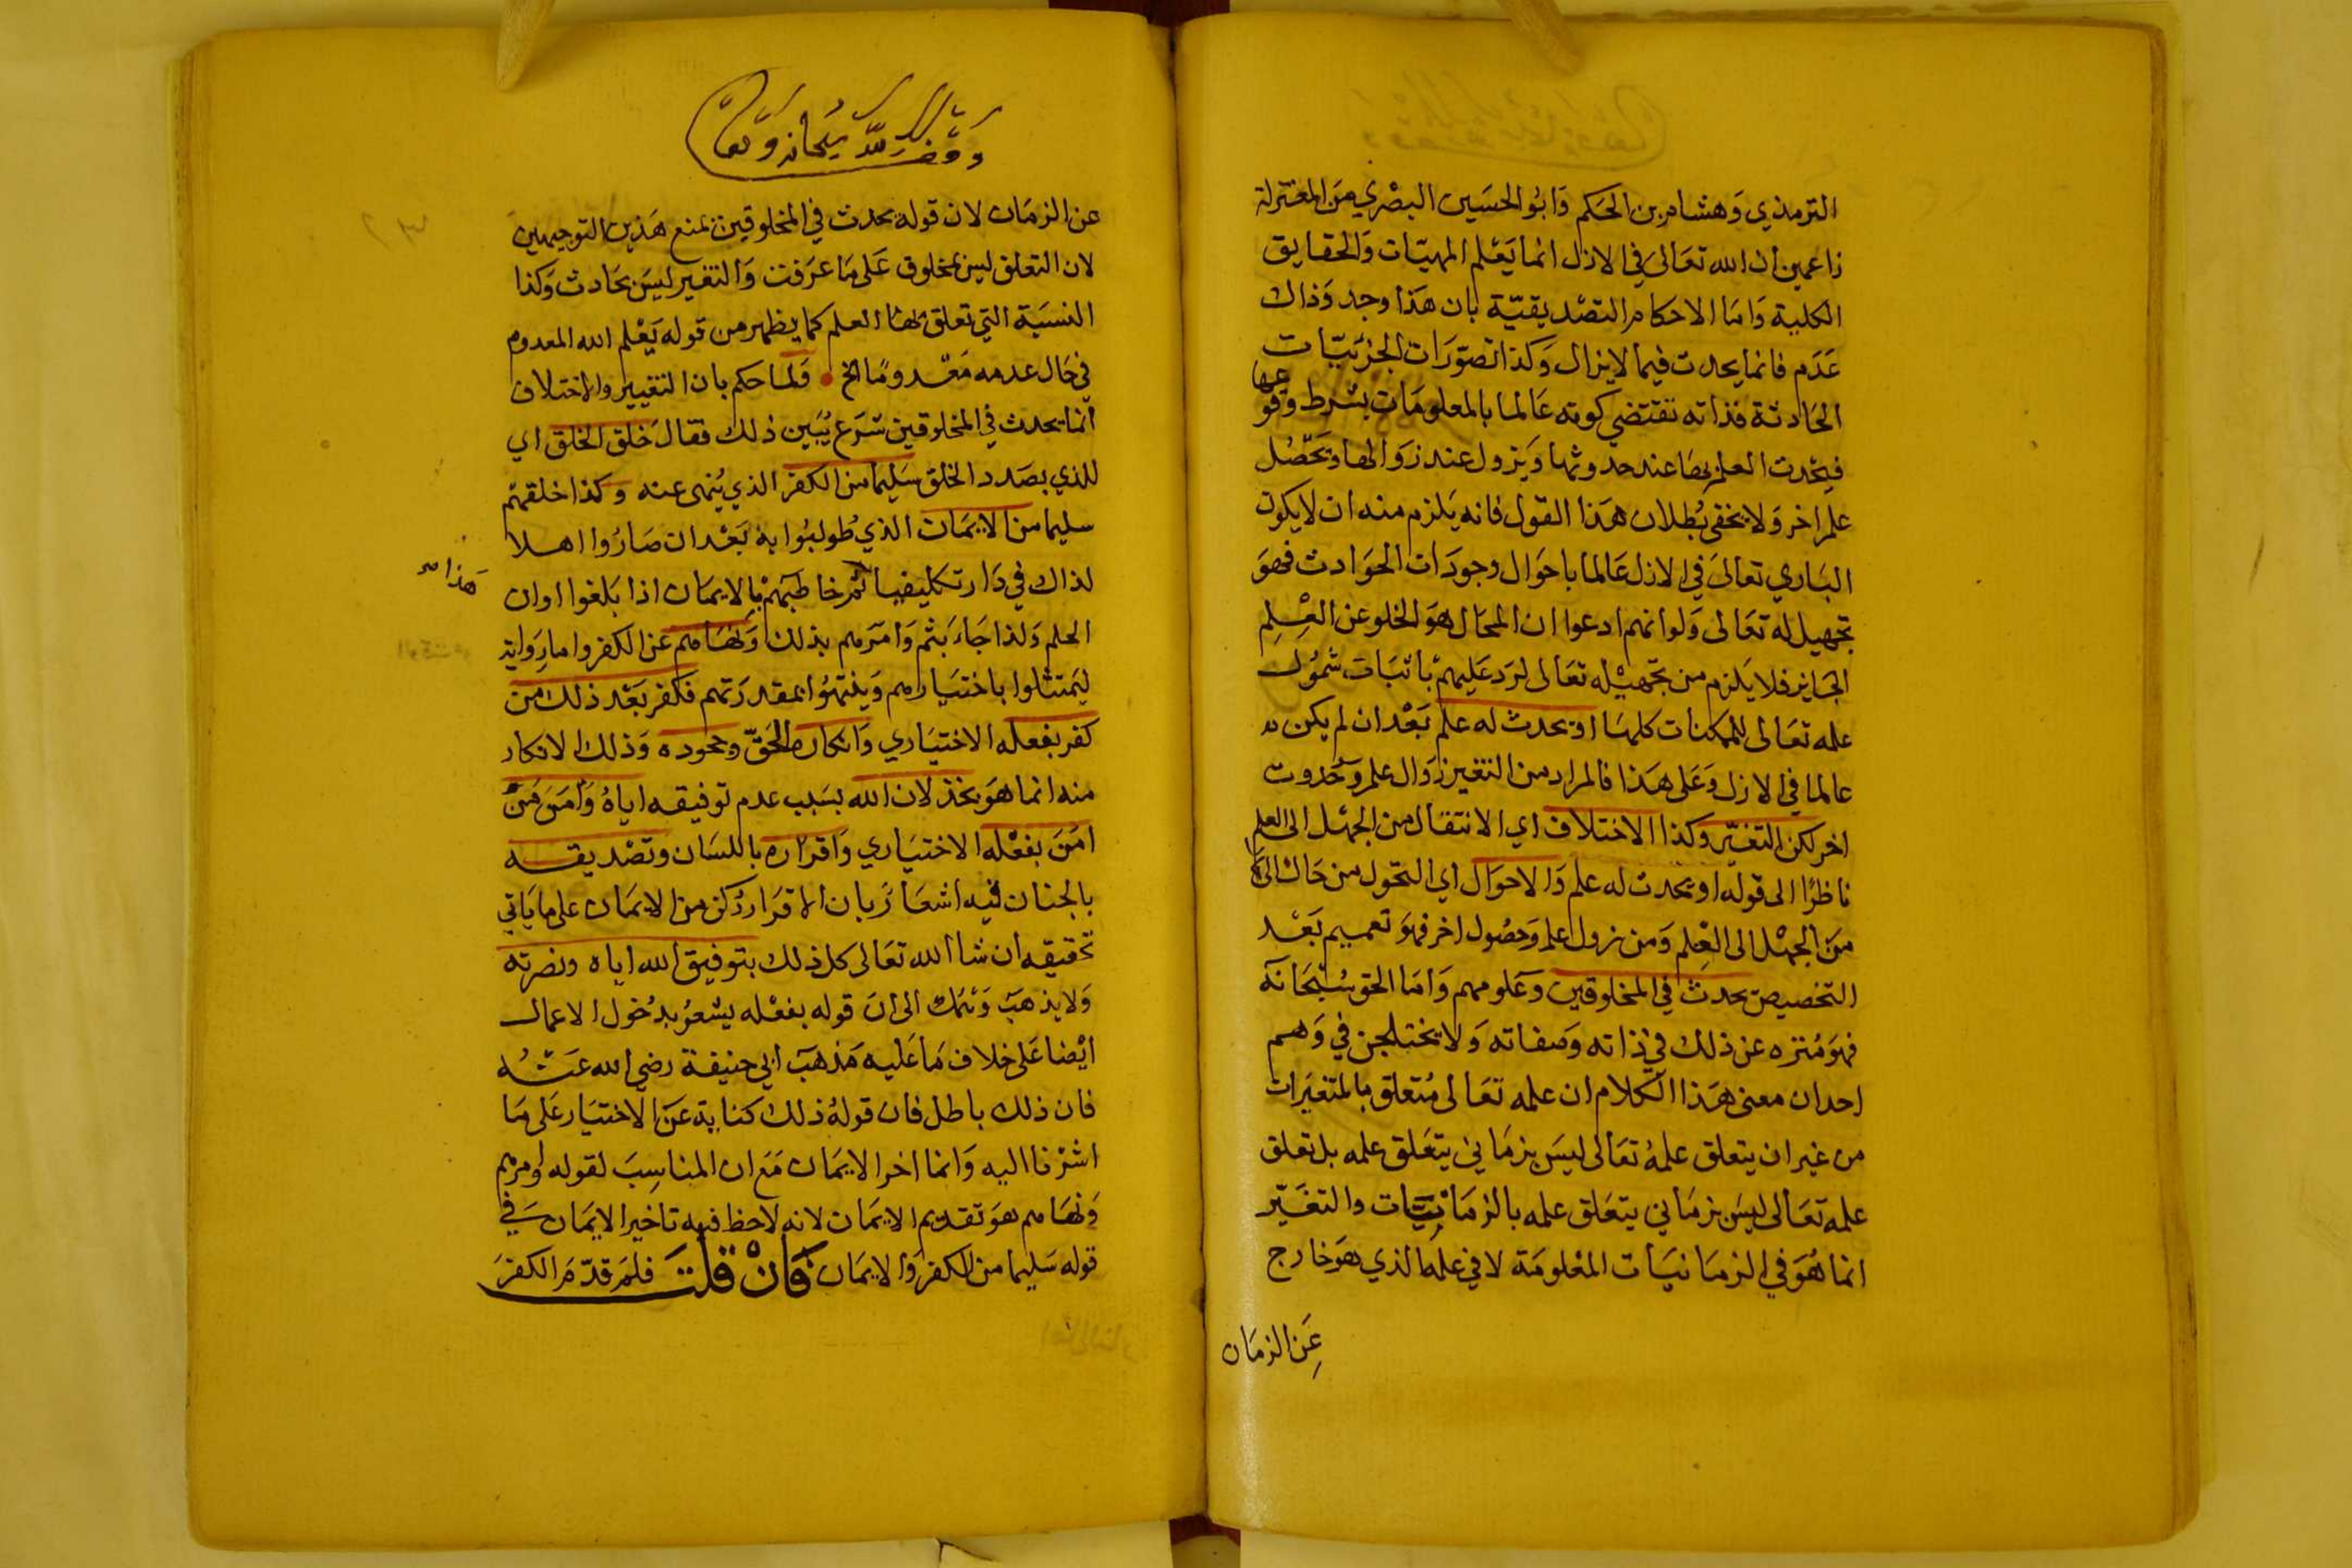 الترمذي وَهشام بن الحَكم وَابُو الحسَين البصْري مِنَ المعتزلة
زاعمين ان الله تعَالىَ في الازل انما يَعْلم المهيّات وَالحقايق
الكلية وَامَا الاحكام التصْديقيّة بان هَذا وجد وَذاك
عَدَم فانما يحدث فيما لايزال وَكذا تصوّرَات الجزئيّات
الحَادثة فذاته تقتضي كونه عَالما بالمعلومَات بشرط وقوعها
فيحْدث العلم بهَا عند حدوثها وَيزول عند زوَالها وَيحَصُل
علم اخر وَلا يخفى بُطلان هَذا القول فانه يَلزم منه ان لا يكون
البَاري تعالىَ في الازل عَالما باحوَال وجودَات الحوَادث فهوَ
تجهيل له تعَالى وَلو انهم ادعوا ان المحَال هوَ الخلو عن العِلم
الجَايز فلا يَلزم من تجْهيْله تعَالى لرَد عَليهمْ باثبَات شمُول
علمه تعَالى للممكنات كلهَا او يحدث له علم بَعْد ان لم يكن
عالما في الازل وَعَلى هَذا فالمراد من التغير زوَال علم وَحُدوث
اخر لكن التغيّر وكذا الاختلاف اي الانتقال من الجهْل الى العلم
ناظرًا الى قوله او يحدث له علم وَالاحوَال اي التحوّل من حَال الى
منَ الجهْل الى العِلم وَمن زول علم وَحصُول اخر فهوَ تعميم بَعْد
التخصيص يحدث في المخلوقين وعَلومهم وَامَا الحق سُبْحَانه
فهوَ مُنزه عن ذلك في ذاته وَصفاته وَلا يختلجن في وَهم
احد ان معنى هَذا الكلام ان علمه تعَالى مُتعلق بالمتغيَرات
من غير ان يتعلق علمهُ تعَالى ليسَ بزمَاني يتعَلق علمه بل تعلق
علمه تعَالى ليسَ بزمَاني يتعَلق علمه بالزمَانيَّات والتغَيّر
انما هُوَ في الزمَانيَات المعْلومَة لا في علمه الذي هوَ خارج
عَن الزمَان
وَقف لله سُبحانه وَتعا
عن الزمَان لان قوله يحدث في المخلوقين يمنع هَذين التوجيهين
لان التعلق ليسَ بمخلوق عَلى مَا عرَفت وَالتغير ليسَ بحَادث وَكذا
النسبَة التي تعلق بهَا العلم كما يظهر من قوله يَعْلم الله المعدوم
في حَال عدمه مَعْدومًا الخ وَلما حكم بان التغيير والاختلاف
انما يحدث في المخلوقين شرَع يُبَين ذلك فقال خلق الخلق اي
للذي بصَدد الخلق سَليما من الكفر الذي يُنهى عنه وكذا خلقهم
سليما من الايمَان الذي طولبُوا به بَعْد ان صَارُوا اهلا
لذاك في دَار تكليفها ثمَّ خاطبَهمْ بالايمَان اذا بَلغوا اوان
هَذا
الحلم وَلذا جَاءَ بثم وَامَرهم بذلك وَنهَاهم عن الكفر وامارَواية
ليَمتثلوا باختيَارهم وَينتهُوا بمقدرَتهم فكفر بَعْد ذلك من
كفر بفعله الاختيَاري وَانكاره الحَقّ وجحوده وَذلك الانكار
منه انما هوَ بخذلان الله بسَبب عدم توفيقه اياهُ وَامَن مَنْ
امَنَ بفعْله الاختيَاري وَاقرَاره باللسَان وتصْديقه
بالجنان فيه اشعَار بان الاقرَار ركن من الايمَان على ما يَاتي
تحقيقه ان شا الله تعَالى كل ذلك بتوفيق الله اياه ونصرته
وَلا يذهبَ وَهمك الى انَ قوله بفعْله يشعُر بدُخول الاعمال
ايْضا عَلى خلاف مَا عَليه مَذهَبَ ابي حنيفة رضي الله عَنْهُ
فان ذلك باطل فان قولهُ ذلك كناية عَن الاختيَار عَلى مَا
اشرْنا اليه وَانما اخر الايمَان مَعَ ان المناسِبَ لقوله اومرهم
وَنهَاهم هوَ تقديم الايمَان لانه لاحظ فيه تاخير الايمَان في
قوله سَليما من الكفر وَالايمَان فَانْ قلتَ فلمَ قدّمَ الكفرَ